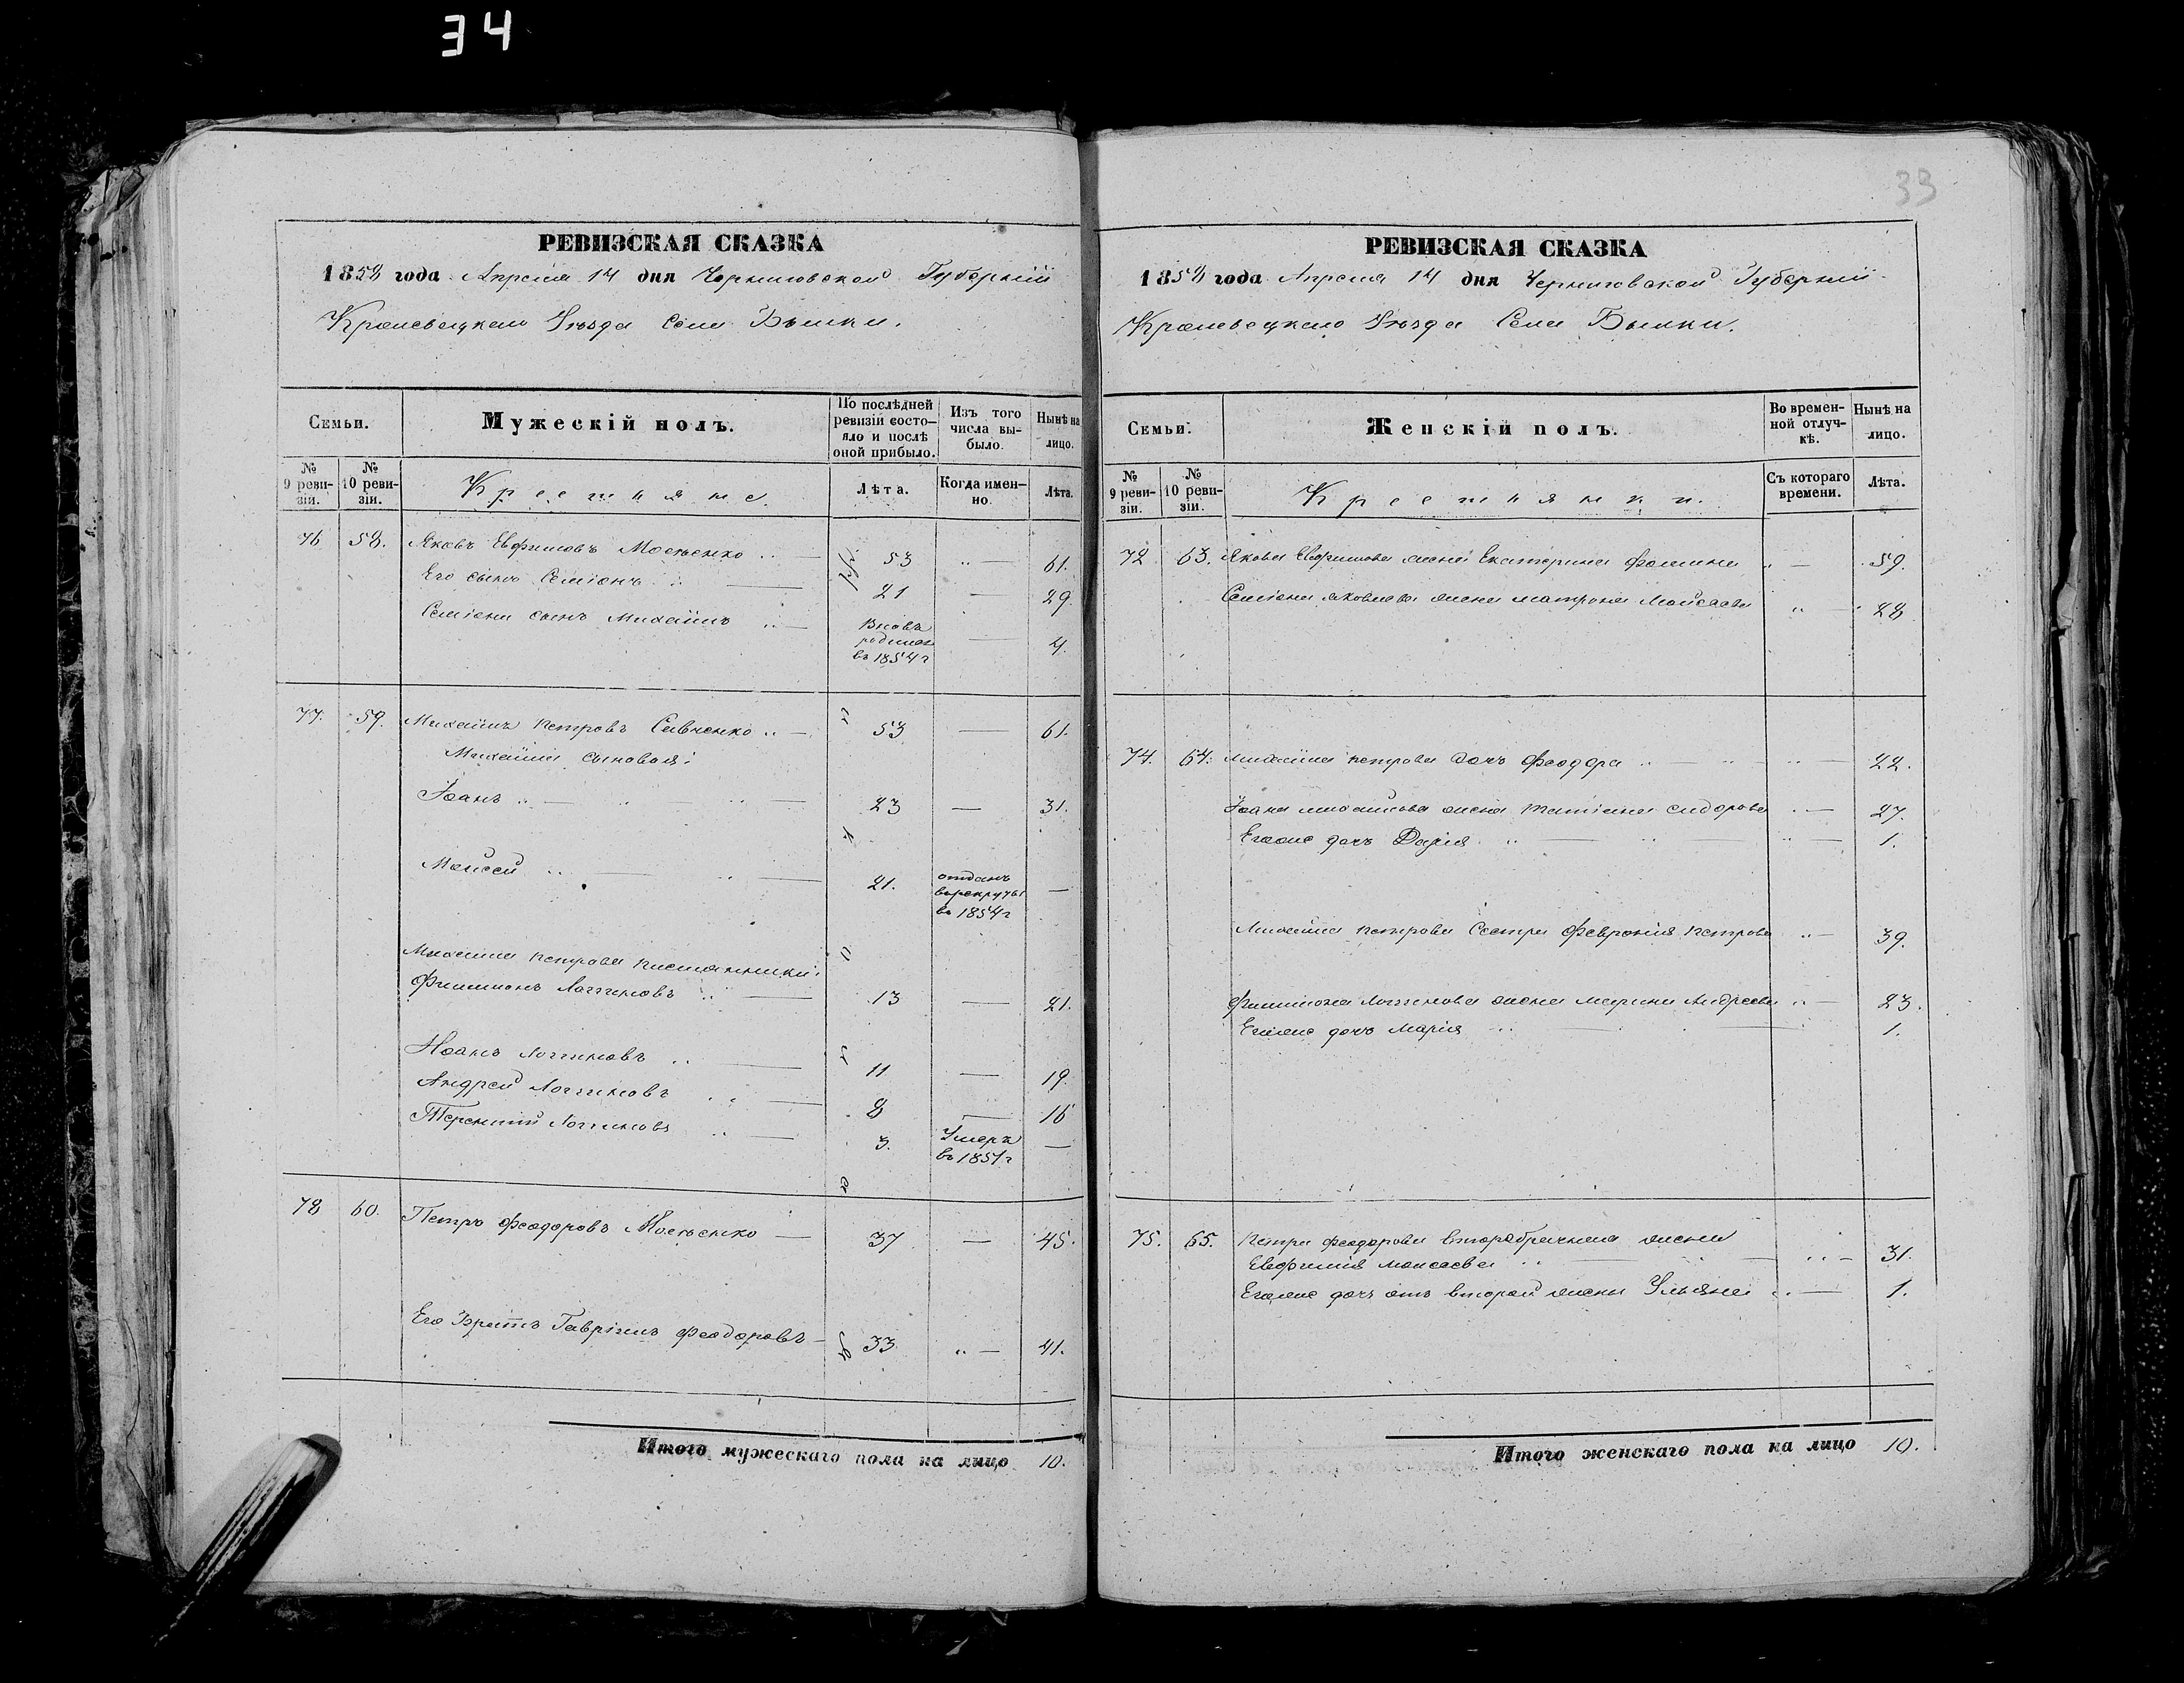 34
33
РЕВИЗСКАЯ СКАЗКА
1858 года Апреля 14 дня Черниговской Губернiи
Кролевецкаго Уѣзда Села Быстрики.
Семьи.
Мужескiй полъ.
По послѣдней ревизiи состо-
яло и послѣ
оной прибыло.
Изъ того
числа вы-
было.
Нынѣ на
лицо.
№
9 реви-
зiи.
№
10 реви-
зiи.
Крестьяне.
Лѣта.
Когда имен-
но.
Лѣта.
76 58. Яковъ Евфимовъ 53 61.
Его сынъ Семiонъ 21 29.
Семiона сынъ Михаилъ Вновь
родился
въ 1854 г 4.
77. 59. Михаилъ Петровъ Савченко 53 61.
Михаила сыновья:
Iоанъ 23 31.
Моисей 21. отданъ
въ рекруты
въ 1854 г
Михаила Петрова племянники:
Филимонъ Логгиновъ 13 21.
Иоанъ Логгиновъ 11 19.
Андрей Логгиновъ 8 16
Терентiй Логгиновъ 3. Умеръ
въ 1851 г
78 60. Петръ Феодоровъ 37 45.
Его Братъ Гаврiилъ Феодоровъ 33 41.
Итого мужескаго пола на лицо 10.
РЕВИЗСКАЯ СКАЗКА
1858 года Апреля 14 дня Черниговской Губернiи
Кролевецкаго Уѣзда Села
Семьи.
Женскiй полъ.
Во времен-
ной отлуч-
кѣ.
Нынѣ на
лицо.
№
9 реви-
зiи.
№
10 реви-
зiи.
Крестьянки.
Съ котораго
времени.
Лѣта.
72 63. Якова Евфимова жена Екатерина Фомина 59.
Семiона Яковлева жена Матрона Моисеева 28
74. 64. Михаила Петрова дочь Феодора 22.
Iоана Михайлова жена Татiана Сидорова 27.
Егоже дочь Дарiя 1.
Михаила Петрова Сестра Феврония Петрова 39.
Филимона Логгинова жена Марина Андреева 23.
Егоже дочь Марiя 1.
75. 65. Петра Феодорова второбрачная жена
Евфимiя Моисеева 31.
Егоже дочь отъ второй жены Ульяна 1.
Итого женскаго пола на лицо 10.